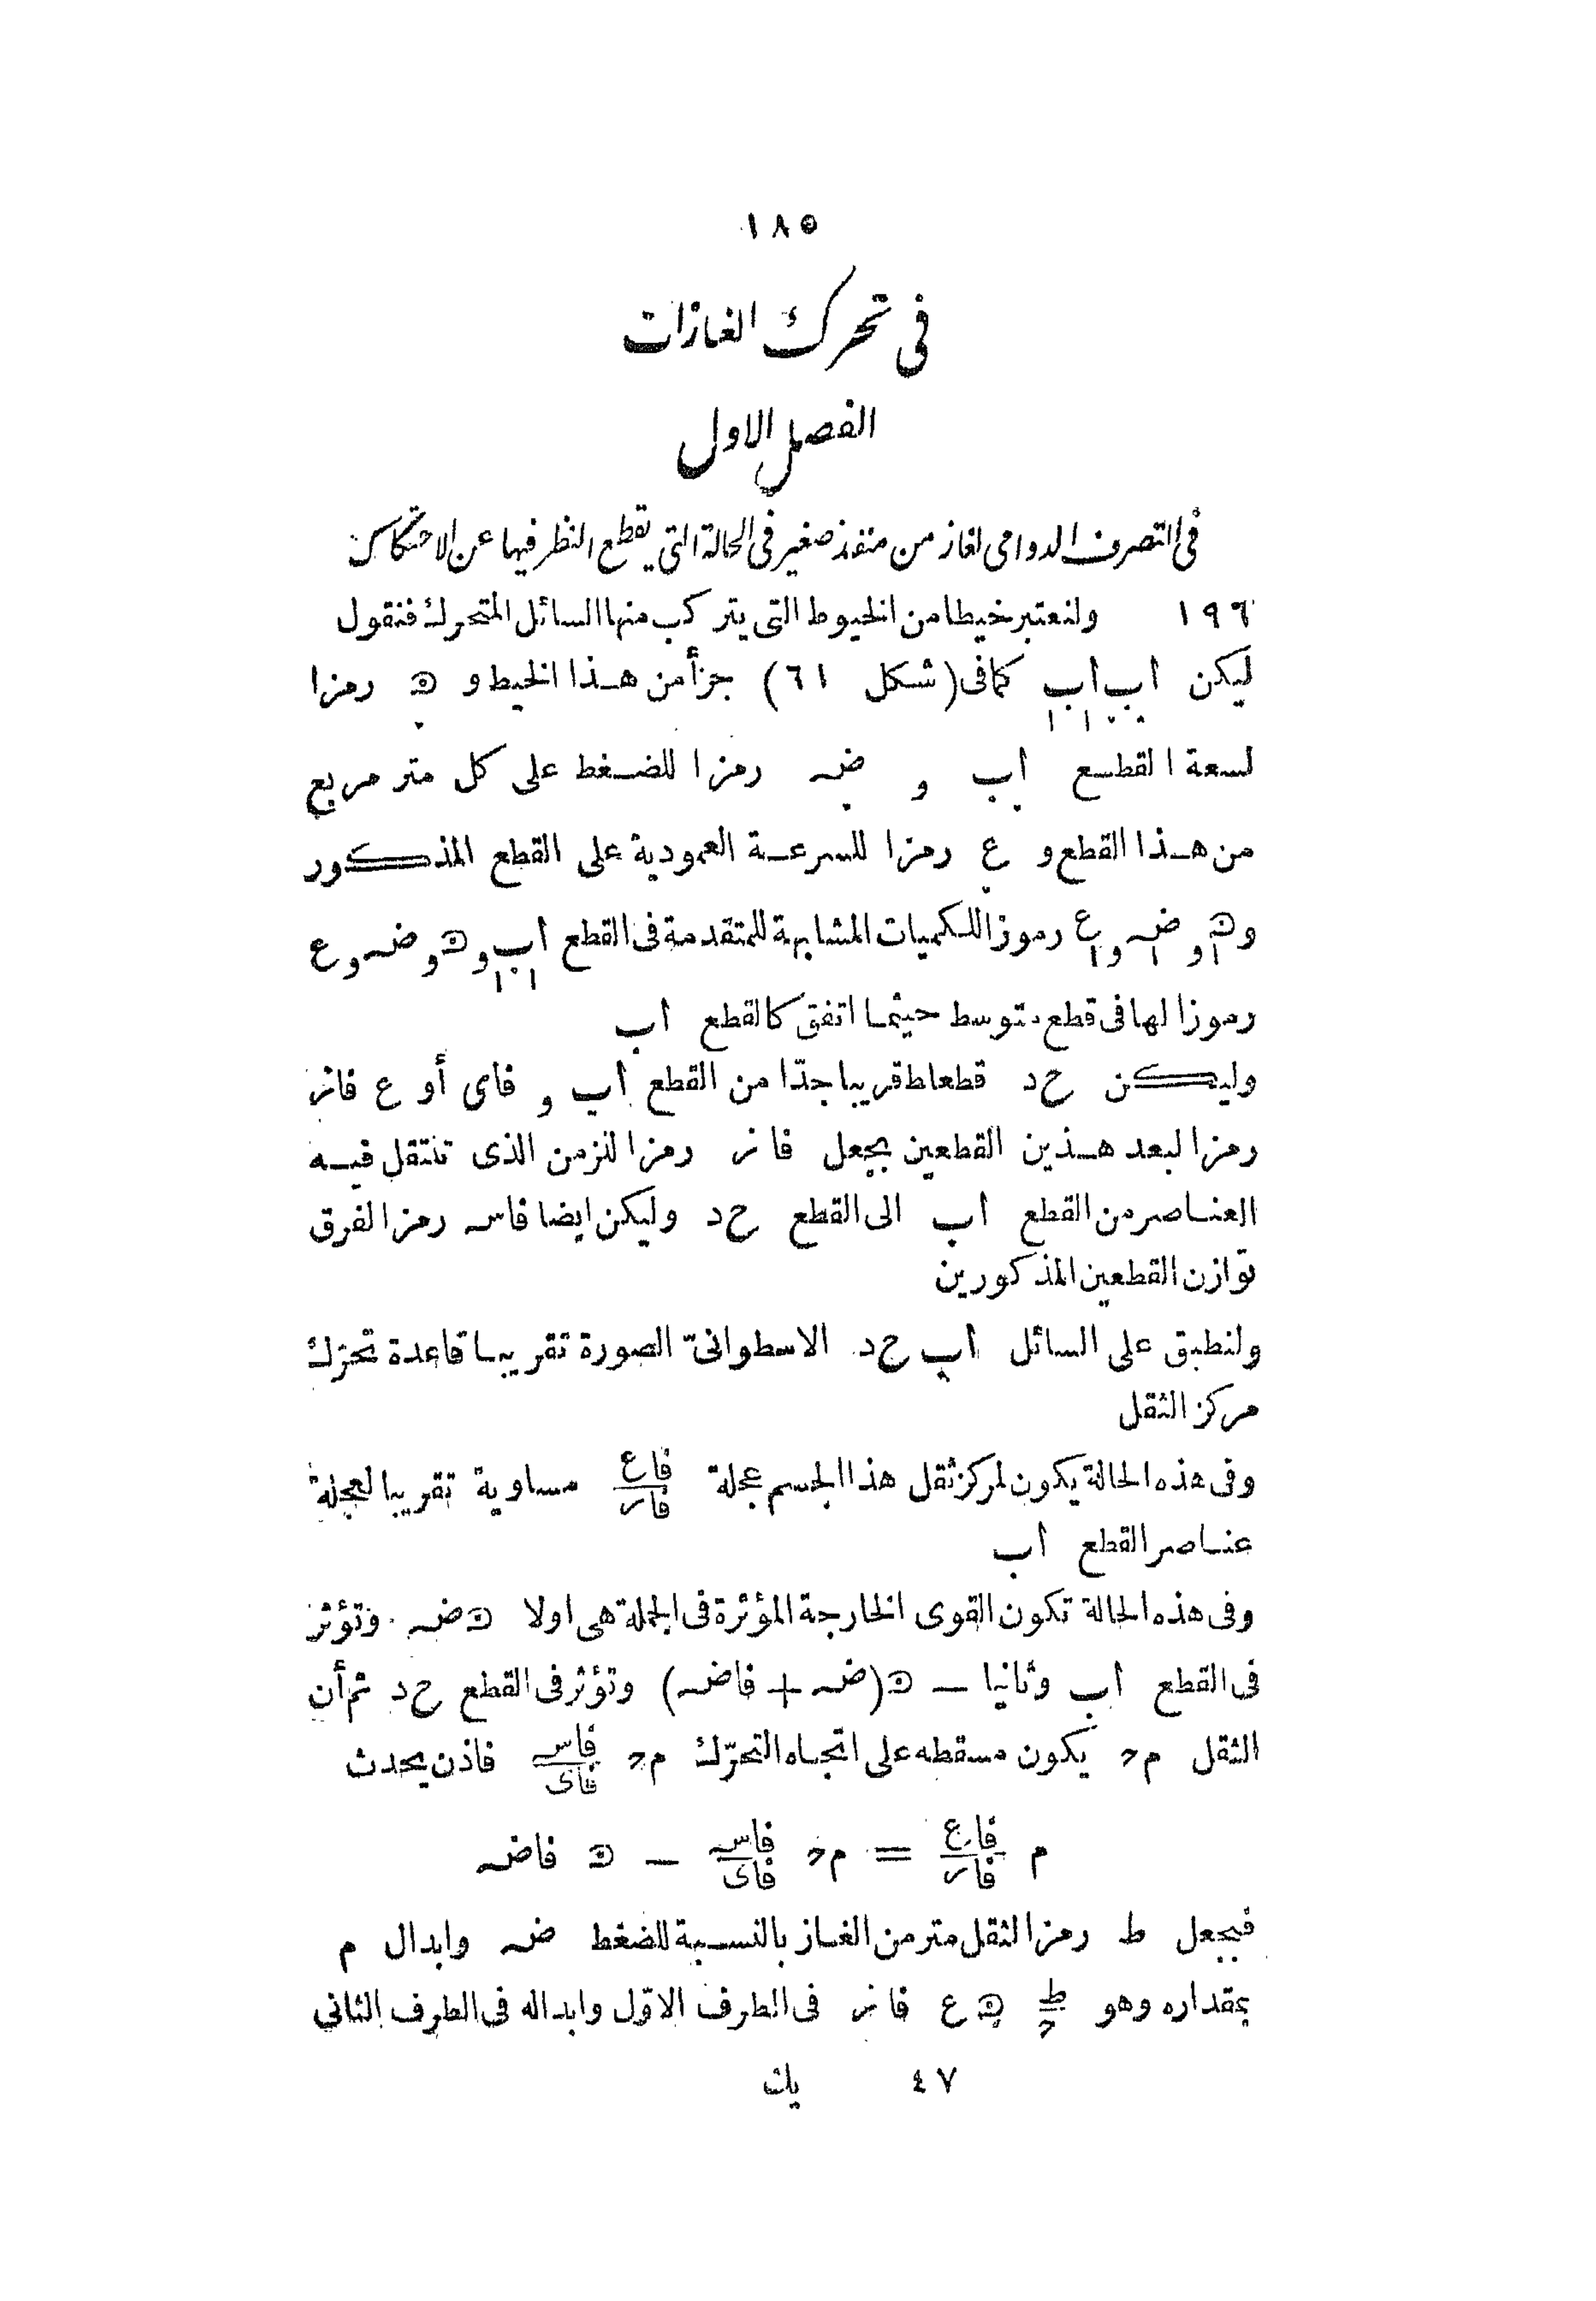 ١٨٥
فى تحرك الغازات
الفصل الاول
فى التصرف الدوامى لغاز من منفذ صغير فى الحالة التى يقطع النظر فيها عن الاحتكاك
١٩٦ ولنعتبر خيطا من الخيوط التى يتركب منها السائل المتحرك فنقول
ليكن اب اب كما فى (شكل ٦١) جزأ من هذا الخيط و رمزا
لسعة القطع اب و ضه رمزا للضغط على كل متر مربع
من هذا القطع و ع رمزا للسرعة العمودية على القطع المذكور
و و ضه و ع رموز اللكميات المشابهة للمتقدمة فى القطع اب و و ضه و ع
رموزا لها فى قطع متوسط حيثما اتفق كالقطع اب
وليكن حد قطعا طقريبا جدّا من القطع اب و فاى أو ع فانر
رمزا لبعد هذين القطعين بجعل فانر رمزا للزمن الذى تنتقل فيه
العناصر من القطع اب الى القطع حد وليكن ايضا فاسه رمزا لفرق
توازن القطعين المذكورين
ولنطبق على السائل اب حد الاسطوانىّ الصورة تقريبا قاعدة تحرّك
مركز الثقل
وفى هذه الحالة يكون لمركز ثقل هذا الجسم عجلة فاع/فانر مساوية تقريبا لعجلة
عناصر القطع اب
وفى هذه الحالة تكون القوى الخارجة المؤثرة فى الجملة هى اولا ضه وتؤثر
فى القطع اب وثانيا — (ضه + فاضه) وتؤثر فى القطع حد ثم أن
الثقل م‍ح يكون مسقطه على اتجاه التحرّك م‍ح فاسه/فاى فاذن يحدث
م فاع/فانر = م‍ح فاسه/فاى — فاضه
فبجعل ط رمزا لثقل متر من الغاز بالنسبة للضغط ضه وابدال م
بمقداره وهو ط/ح ع فانر فى الطرف الاوّل وابداله فى الطرف الثانى
٤٧ يك